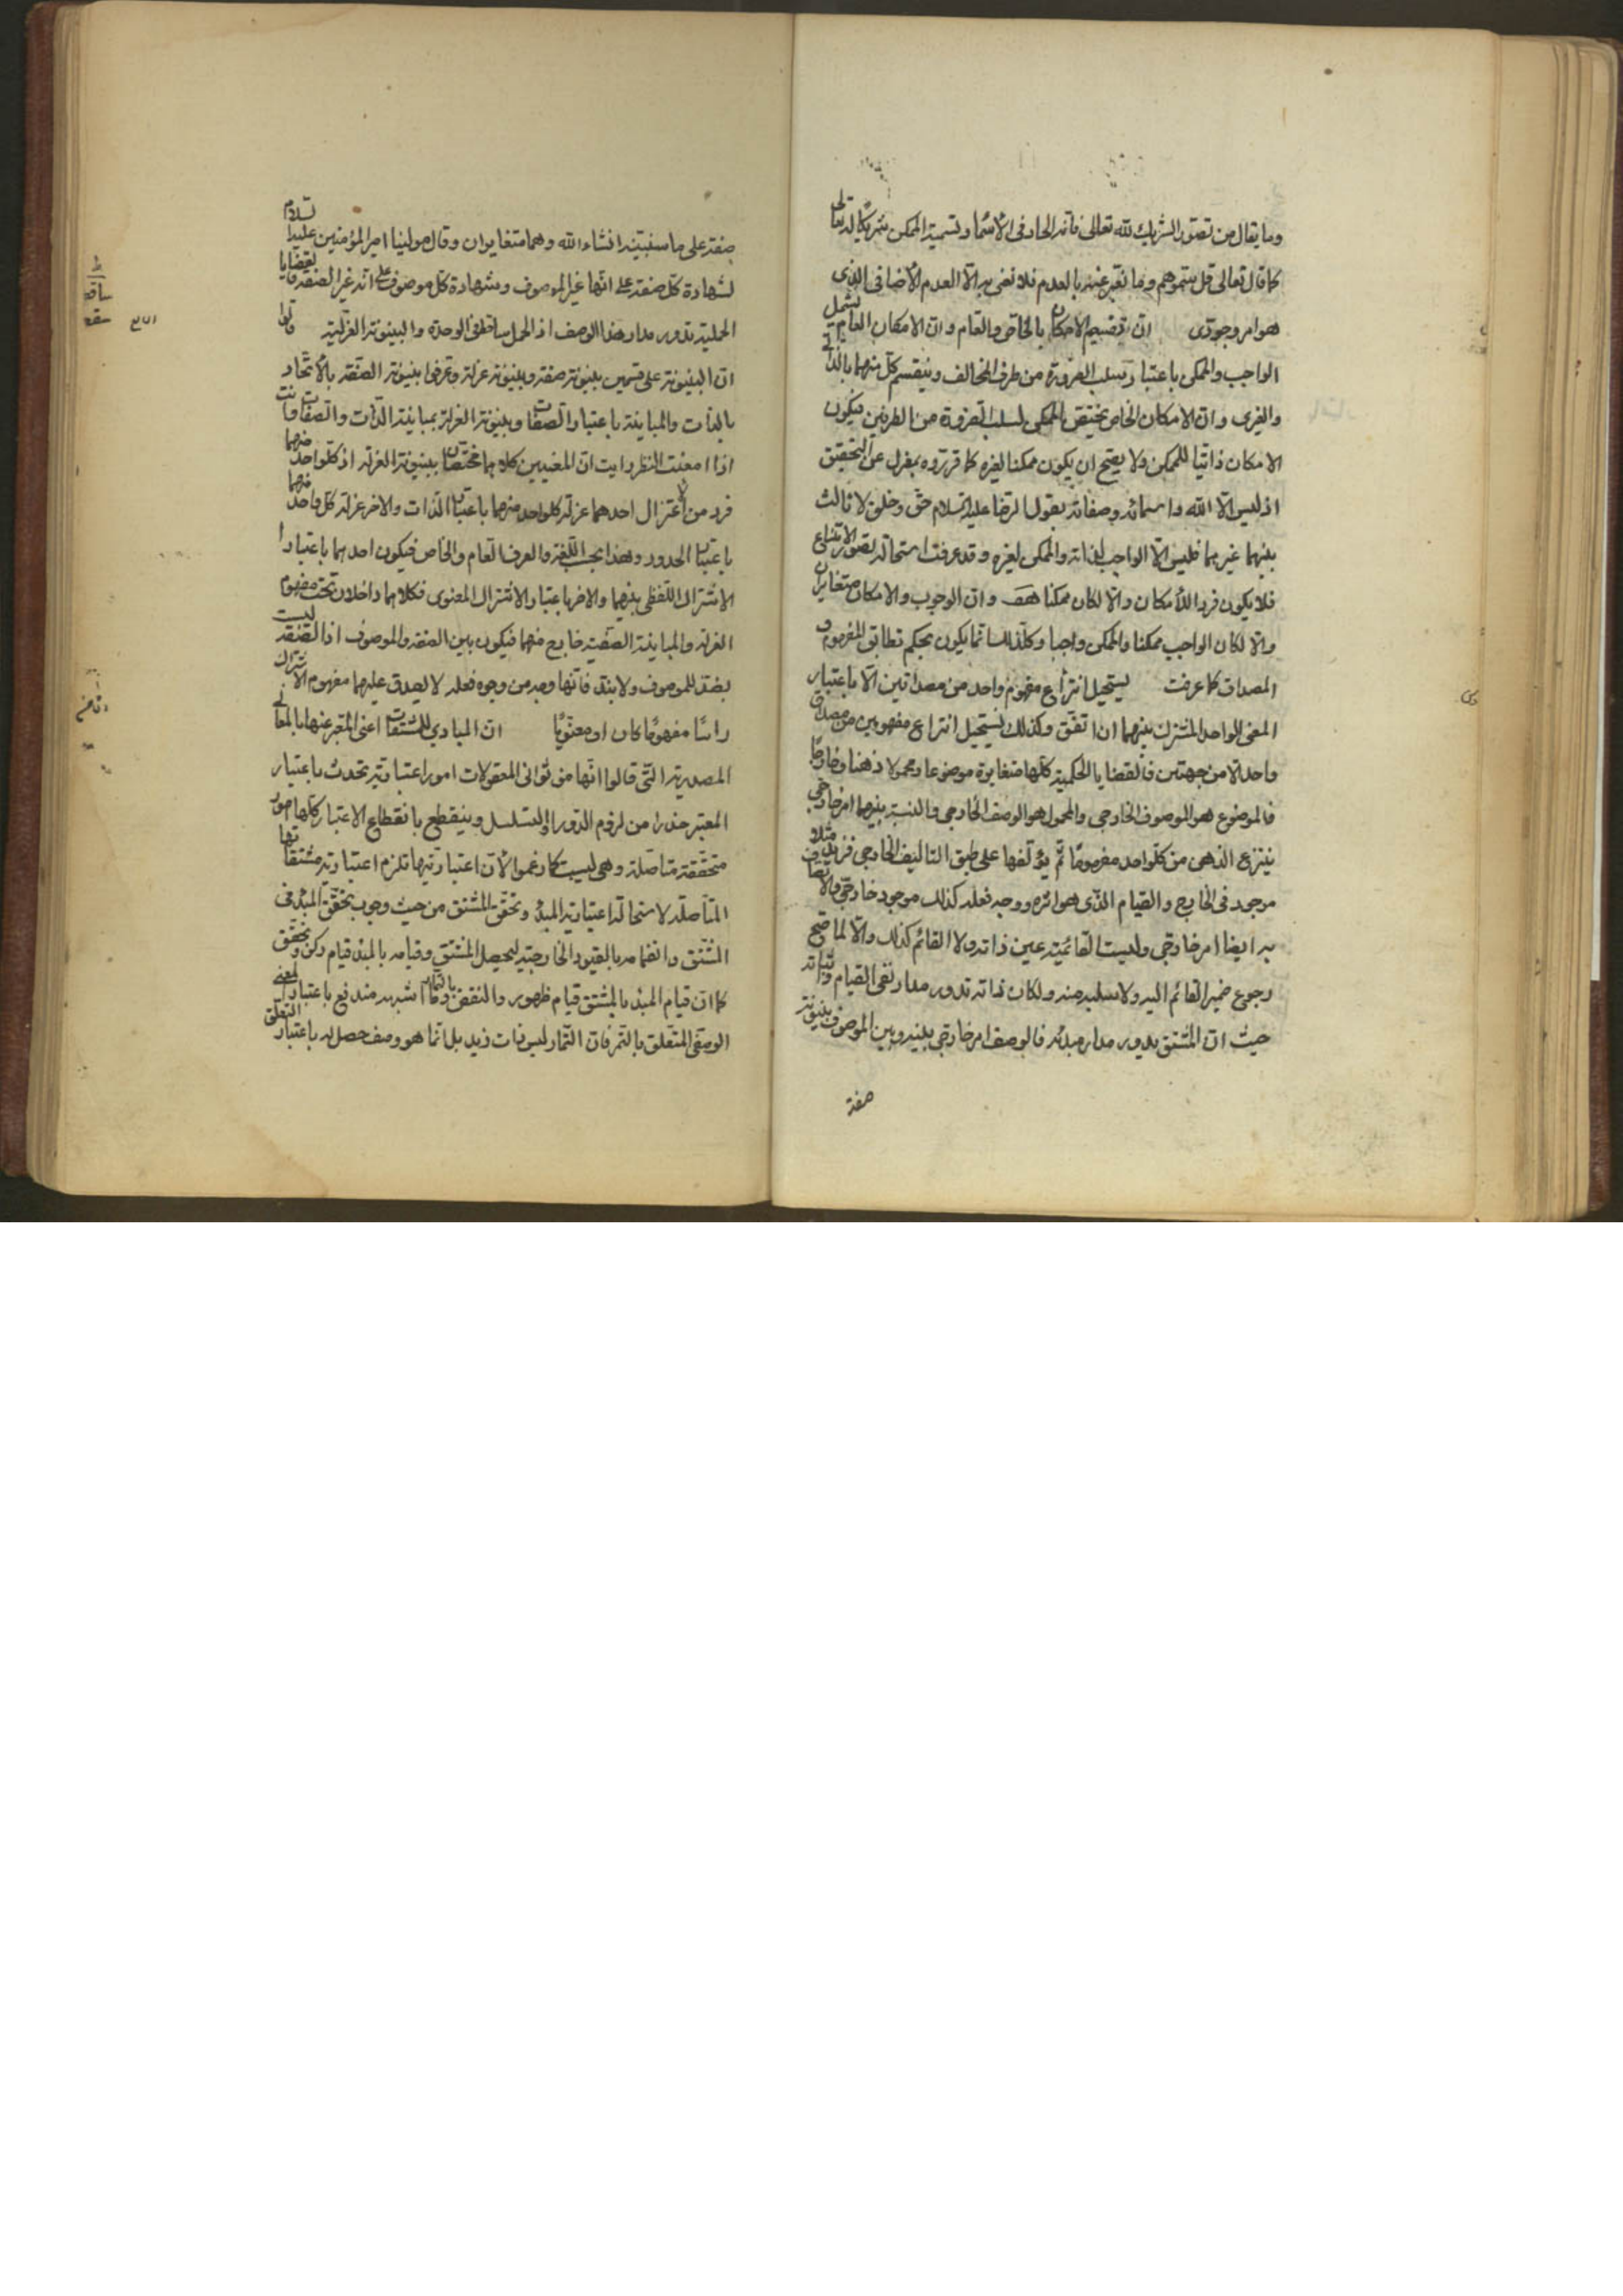 وما يقال من تصور الشريك لله تعالى فانه الحاد فى الأسماء وتسمية الممكن شريكا له تعالى
كما قال تعالى قل سموهم وما نعبر عنه بالعدم فلا نعنى به الا العدم الأضافى الذى
هو امر وجودى ان تقسيم الامكان بالخاص والعام وان الامكان العام يشمل
الواجب والممكن باعتبار سلب الضرورة من طرف المخالف وينقسم كل منهما بالذاتى
والغيرى وان الامكان الخاص يختص بالممكن لسلب الضرورة من الطرفين فيكون
الامكان ذاتيا للممكن ولا يصح ان يكون ممكنا لغيره كما قرروه بمعزل عن التحقيق
اذ ليس الا الله واسمائه وصفاته بقول الرضا عليه السلام حق وخلق لا ثالث
بينهما غيرهما فليس الا الواجب لذاته والممكن لغيره وقد عرفت استحالة تصور الامتناع
فلا يكون فردا للأمكان والا لكان ممكنا هف وان الوجوب والامكان متغايران
والا لكان الواجب ممكنا والممكن واجبا وكل ذلك انما يكون بحكم تطابق المفهوم و
المصداق كما عرفت يستحيل انتزاع مفهوم واحد من مصداقين الا باعتبار
المعنى الواحد المشترك بينهما ان اتفق وكذلك يستحيل انتزاع مفهومين من مصداق
واحد الا من جهتين فالقضايا الحكمية كلها متغايرة موضوعا ومحمولا ذهنا وخارجا
فالموضوع هو الموصوف الخارجى والمحمول هو الوصف الخارجى والنسبة بينهما امر خارجى
ينتزع الذهن من كلواحد مفهوما ثم يؤلفها على طبق التاليف الخارجى فزيد مثلا
موجود فى الخارج والقيام الذى هو اثره ووجه فعله كذلك موجود خارجى والاتصاف
به ايضا امر خارجى وليست القائمية عين ذاته ولا القائم كذلك والا لما صح
رجوع ضمير القائم اليه ولا سلبه منه ولكان ذاته تدور مدار نفى القيام وثباته
حيث ان المشتق يدور مدار مبدئه فالوصف امر خارجى بينه وبين الموصوف بينونة
صفة
صفة على ما سنبينه انشاء الله وهما متغايران وقال مولينا امير المؤمنين عليه السلام
لشهادة كل صفة على انها غير الموصوف وشهادة كل موصوف على انه غير الصفة فالقضايا
الحملية تدور مدار هذا الوصف اذ الحمل ساقط فى الوحدة والبينونة العزلية قالوا
ان البينونة على قسمين بينونة صفة وبينونة عزلة وعرفوا بينونة الصفة بالأتحاد
بالذات والمباينة باعتبار الصفات وبينونة العزلة بمباينة الذات والصفات وانت
اذا امعنت النظر رايت ان المعنيين كلاهما مختصان ببينونة العزلة اذ كلواحد منهما
فرد من الأعتزال احدهما عزلة كلواحد منهما باعتبار الذات والاخر عزلة كل واحد منهما
باعتبار الحدود وهذا بحسب اللغة والعرف العام والخاص فيكون احدهما باعتبار
الاشتراك اللفظى بينهما والاخر باعتبار الاشتراك المعنوى فكلاهما داخلان تحت مفهوم
العزلة والمباينة الصفتية خارج منهما فيكون بين الصفة والموصوف اذ الصفة ليست
بضد للموصوف ولا بند فانها وجه من وجوه فعله لا يصدق عليهما مفهوم الاشتراك
راسا مفهوما كان او معنويا ان المبادى للمشتقات اعنى المعبر عنها بالمعانى
المصدرية التى قالوا انها من ثوانى المعقولات امور اعتبارية تحدث باعتبار
المعتبر حذرا من لزوم الدور او التسلسل وينقطع بانقطاع الاعتبار كلها امور
متحققة متاصلة وهى ليست كما زعموا لأن اعتباريتها تلزم اعتبارية مشتقاتها
المتأصلة لاستحالة اعتبارية المبدء وتحقق المشتق من حيث وجوب تحقق المبدء فى
المشتق وانضمامه بالقيود الخارجية ليحصل المشتق وقيامه بالمبدء قيام ركن وتحقق
كما ان قيام المبدء بالمشتق قيام ظهور والنقض بالتمار وما اشبهه مندفع باعتبار المعنى
الوصفى المتعلق بالتمر فان التمار ليس ذات زيد بل انما هو وصف حصل له باعتبار التعلق